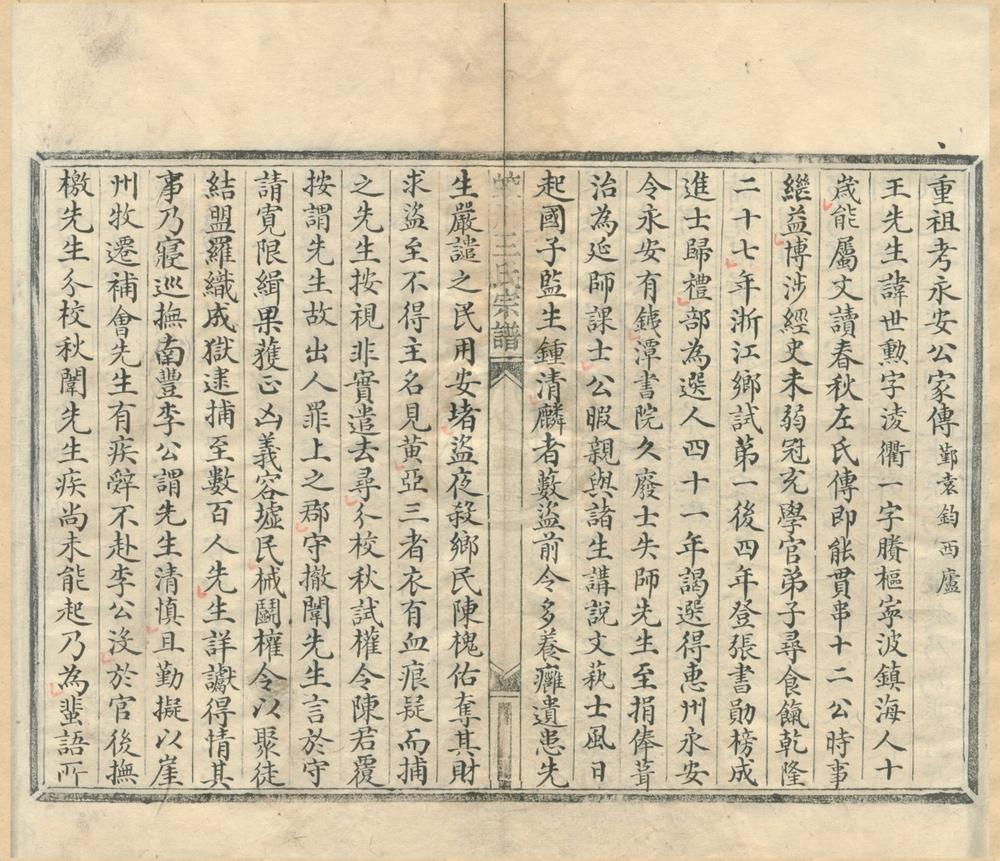 重祖考永安公家傳 鄞袁鈞西廬
王先生諱世勲字淩衢一字賸樞寧波鎮海人十
歲能屬文讀春秋左氏傳即能貫串十二公時事
繼益博涉經史未弱冠充學官弟子尋食餼乾隆
二十七年浙江鄉試第一後四年登張書勛榜成
進士歸禮部為選人四十一年謁選得惠州永安
令永安有銕潭書院久廢士失師先生至捐俸葺
治為延師課士公暇親與諸生講說文萟士風日
起國子監生鍾清麟者藪盜前令多養癰遺患先
王氏宗譜
生嚴譴之民用安堵盜夜殺鄉民陳槐佑奪其財
求盜至不得主名見黄亞三者衣有血痕疑而捕
之先生按視非實遣去尋分校秋試權令陳君覆
按謂先生故出人罪上之郡守撤闈先生言於守
請寛限緝果獲正凶義容墟民械鬭權令以聚徒
結盟羅織成獄逮捕至數百人先生詳讞得情其
事乃寢巡撫南豐李公謂先生清慎且勤擬以崖
州牧遷補會先生有疾辤不赴李公没於官後撫
檄先生分校秋闈先生疾尚未能起乃為蜚語所